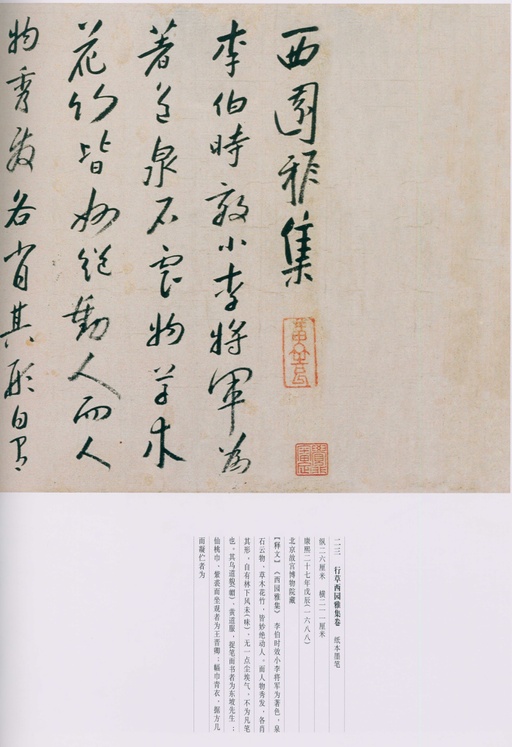 西園雅集
李伯時效小李將軍為
著色泉石雲物草木
花竹皆妙絕動人而人
物秀發各肖其形自有
二三 行草西园雅集卷 纸本墨笔
纵二六厘米 横二一一厘米
康熙二十七年戊辰(一六八八)
北京故宫博物院藏
【释文】《西园雅集》 李伯时效小李将军为著色,泉
石云物、草木花竹,皆妙绝动人。而人物秀发,各肖
其形,自有林下风未(味),无一点尘埃气,不为凡笔
也。其乌道帽(帽)、黄道服,捉笔而书者为东坡先生;
仙桃巾、紫裘而坐观者为王晋卿;幅巾青衣,据方几
而凝伫者为